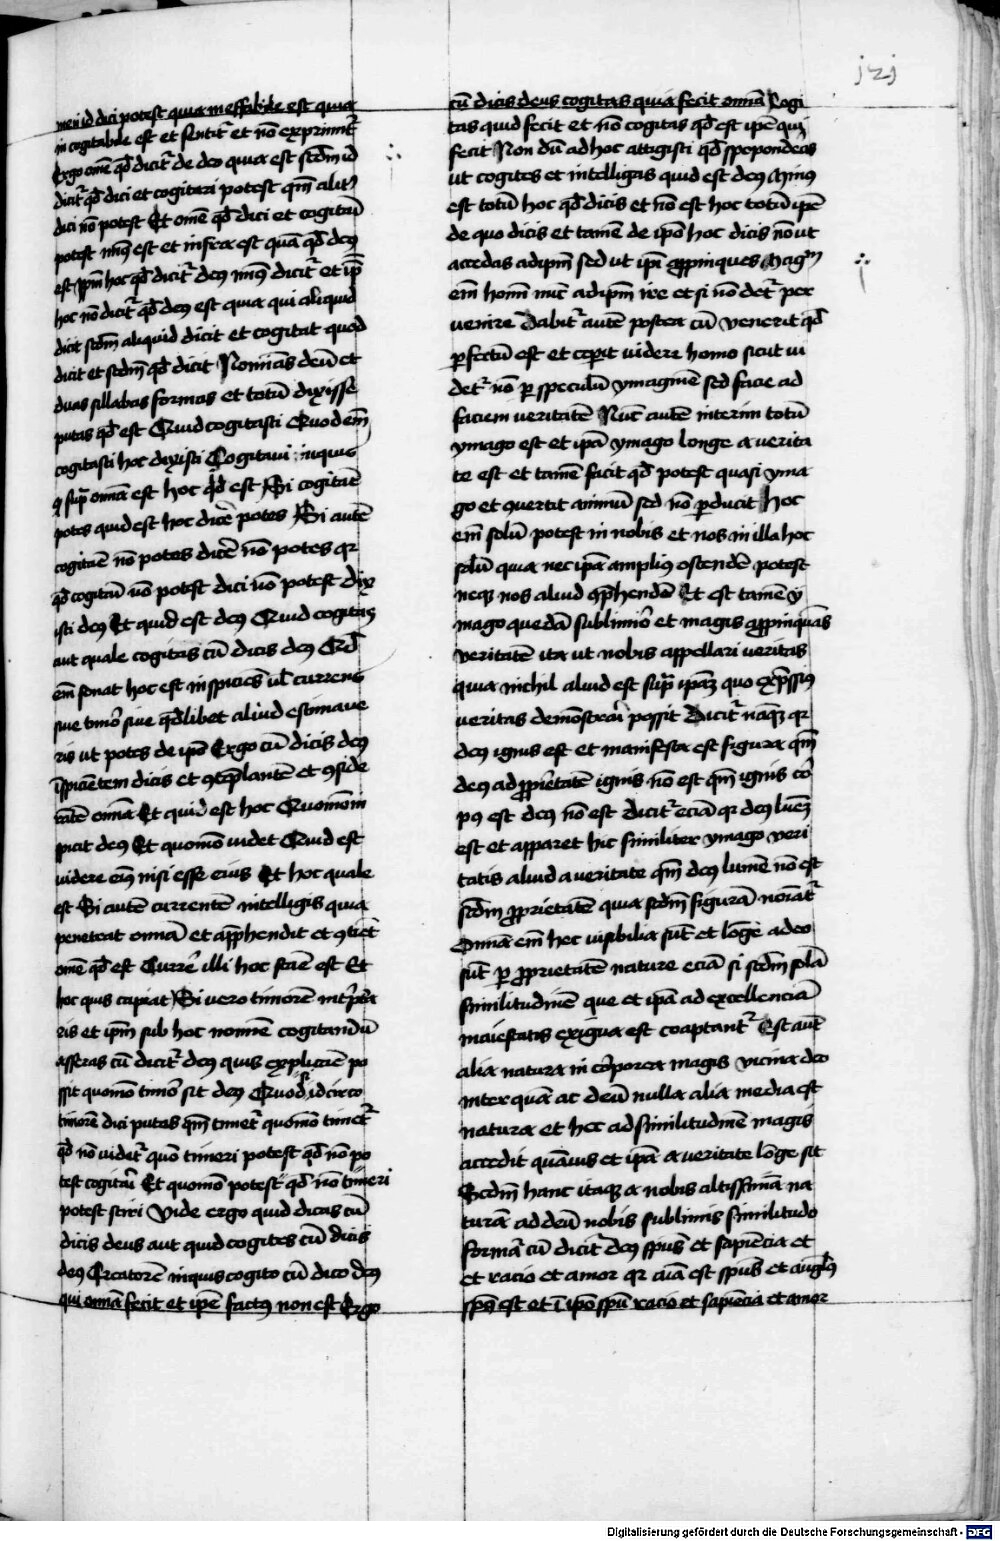 jzj
neri id dici potest quia ineffabile est quia
incogitabile est et sentit᷑ et nō exprimit᷑
Ergo om̄e qd̄ dicit᷑ de deo quia est scd̄m id
dicit᷑ qd̄ dici et cogitari potest qm̄ alit᷑
dici nō potest Et om̄e qd̄ dici et cogitari
potest minꝰ est et infra est quā qd̄ deꝰ
est ip̄m hoc qd̄ dicit᷑ deꝰ minꝰ dicit᷑ et ip̄e
hoc nō dicit᷑ qd̄ deꝰ est quia qui aliquid
dicit scd̄m aliquid dicit et cogitat quod
dicit et scd̄m qd̄ dicit Nominas deū et
duas sillabas formas et totū dixisse
putas qd̄ est Quid cogitasti Quod em̄
cogitasti hoc dixisti Cogitavi inquis
q sup̄ om̄ia est hoc qd̄ est Si cogitare
potes quid est hoc dicē potes Si autē
cogitare nō potes dicē nō potes qr
qd̄ cogitari nō potest dici nō potest dix
isti deꝰ Et quid est deꝰ Quid cogitas
aut quale cogitas cū dicis deꝰ Qd̄
em̄ sonat hoc est inspiciēs ul̄ currens
sive timor sive qd̄libet aliud estimave
ris ut potes de ip̄o Ergo cū dicis deꝰ
īspicientem dicis et ꝯtēplantē et ꝯside
rātē om̄ia Et quid est hoc Quomō in
spicit deꝰ Et quomō videt Quid est
videre eiꝰ nisi esse eius Et hoc quale
est Si autē currentē intelligis quia
penetrat omnia et app̄hendit et ꝯtinet
om̄e qd̄ est Curr̄e illi hoc scire est Et
hoc quis capiat Si vero timorē int̄pr̄a
ris et ip̄m sub hoc nomīe cogitandū
asseras cū dicit᷑ deꝰ quis explicare po
ssit quomō timor sit deꝰ Quod si idcirco
timorē dici putas qm̄ timet᷑ quomō timet᷑
qd̄ nō videt᷑ quō timeri potest qd̄ nō po
test cogitari Et quomō potest qd̄ nō timeri
potest sciri Vide ergo quid dicas cū
dicis deus aut quid cogites cū dicis
deꝰ Creatorē inquis cogito cū dico deꝰ
qui om̄ia fecit et ip̄e factꝰ non est Ergo
cū dicis deus cogitas quia fecit om̄ia Cogi
tas quid fecit et nō cogitas qd̄ est ip̄e qui
fecit Non dū ad hoc attigisti qd̄ spoponderas
ut cogites et intelligas quid est deꝰ Minꝰ
est totū hoc qd̄ dicis et nō est hoc totū ip̄e
de quo dicis et tamē de ip̄o hoc dicis nō ut
accedas ad ip̄m sed ut ip̄i app̄inques Magn̄
em̄ homī nūc ad ip̄m ire et si nō det᷑ per
venire Dabit᷑ autē postea cū venerit qd̄
ꝑfectū est et cep̄it videre homo sicut vi
det᷑ nō ꝑ speculū ymagine sed facie ad
faciem veritatē Nūc autē interim totū
ymago est et ip̄a ymago longe a verita
te est et tamē facit qd̄ potest quasi yma
go et ꝯvertit animū sed nō ꝑducit Hoc
em̄ solū potest in nobis et nos in illa hoc
solū quia nec ip̄a amplius ostendē potest
neqꝫ nos aliud app̄hendē Et est tamē y
mago quedā sublimior et magis app̄inquās
veritatē ita ut nobis appellari veritas
quia nichil aliud est sup̄ ip̄aꝫ quo exp̄ssiꝰ
veritas demōstrari possit Dicit᷑ naqꝫ qr
deꝰ ignis est et manifesta est figura qm̄
deꝰ ad ꝓprietatē ignis nō est qm̄ ignis cor
pꝰ est deꝰ nō est dicit᷑ eciā qr deꝰ lumē
est et apparet hic similiter ymago veri
tatis aliud a veritate qm̄ deꝰ lumē nō est
scd̄m ꝓprietatē quia scd̄m figurā noīat᷑
Omnia em̄ hec visibilia sūt et lōge a deo
sūt ꝑ ꝓprietatē nature eciā si scd̄m solā
similitudinē que et ip̄a ad excellenciā
maiestatis exigua est coaptant᷑ Est aut̄
alia natura incorporea magis vicina deo
inter quā ac deū nulla alia media est
natura et hec ad similitudinē magis
accedit quāvis et ip̄a a veritate lōge sit
Scd̄m hanc itaqꝫ a nobis altissimā na
turā ad deū nobis sublimis similitudo
formā cū dicit᷑ deꝰ spūs et sapiēcia et
et racio et amor qr aīa est spūs et angl̄ꝰ
spūs est et ī ip̄o spū racio et sapiēcia et amor
Digitalisierung gefördert durch die Deutsche Forschungsgemeinschaft - DFG